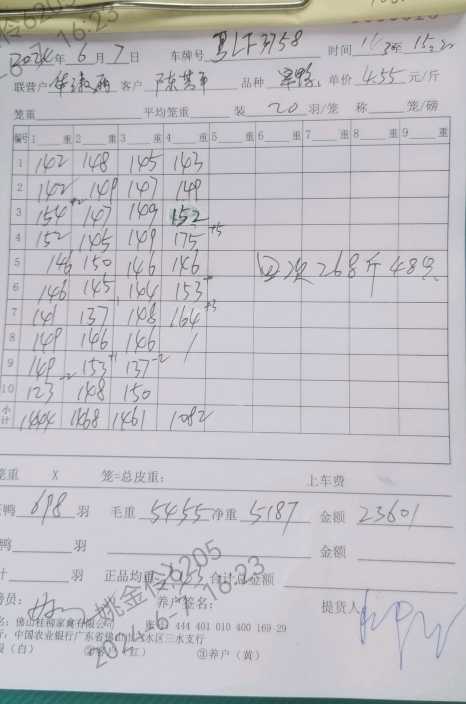 2024年 6月 7日 车牌号 粤LF3758 时间
联营户 客户 陈其军 品种 单价 4.55 元/斤
笼重 平均笼重 装 20 羽/笼 称 笼/磅
编号 1 重 2 重 3 重 4 重 5 重 6 重 7 重 8 重 9 重
1 142 148 145 143
2 142 149 147 149
3 154+2 147 149 152
4 152 145 149 175+5
5 146 150 146 146 四次268斤48只
6 146 145 144 153
7 141 137 148 164+3
8 149 146 146 /
9 149 153+1 137-2
10 123-2 148 150
小计 1444 1468 1461 1082
笼重 X 笼=总皮重: 上车费
鸭 698 羽 毛重 5455 净重 5187 金额 23601
鸭 羽 金额
计 羽 正品均重: 合计总金额
员: 养户签名: 提货人
名: 佛山桂柳家禽有限公司 账号 444 401 010 400 169-29
行: 中国农业银行广东省佛山市三水区三水支行
(白) ②客户(红) ③养户(黄)
姚金伶6205
2024-6-7 16:23